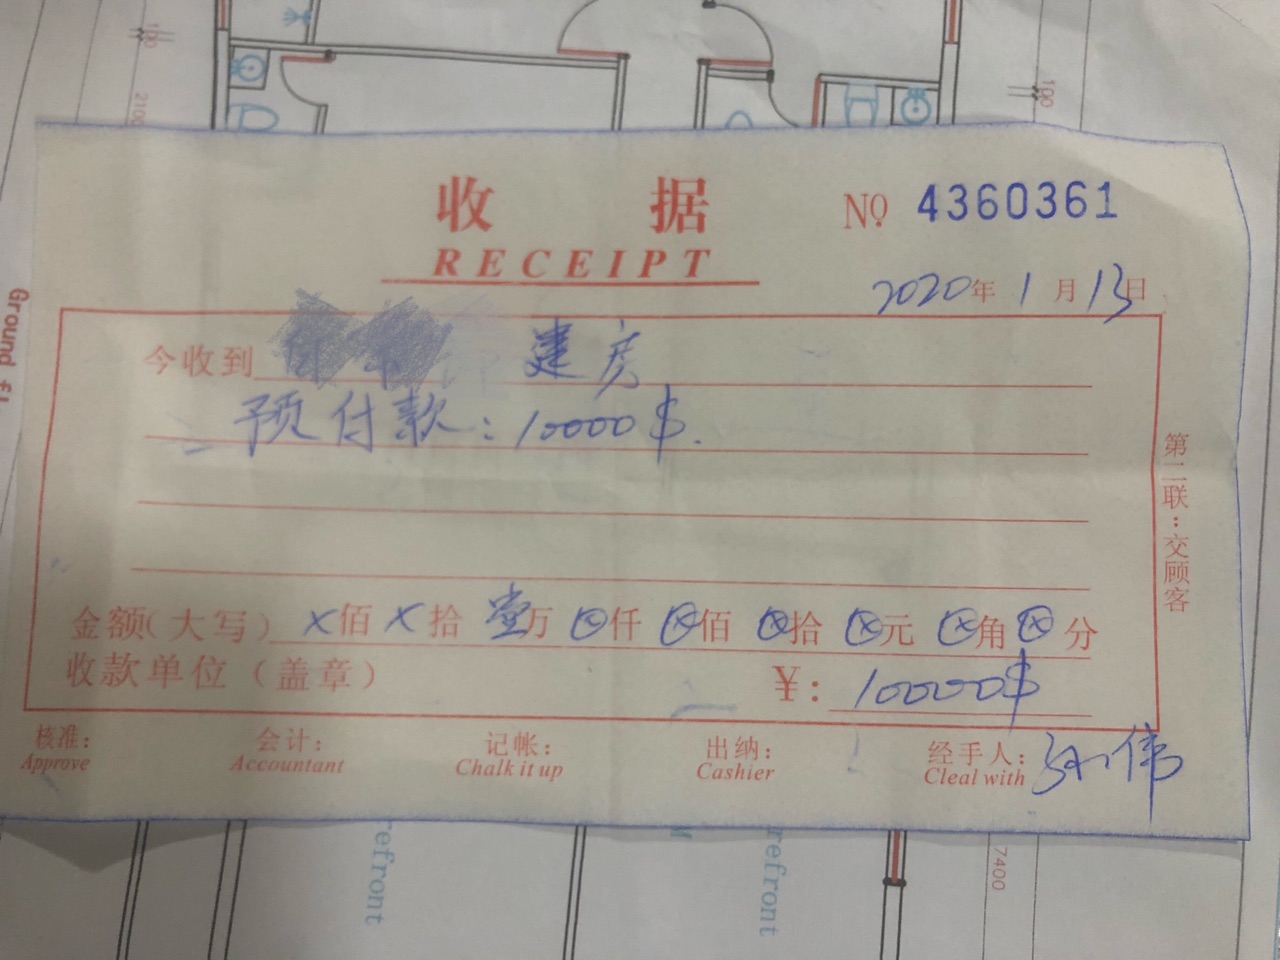 100
2100
100
收据
RECEIPT
№ 4360361
2020年1月13日
Ground
今收到 建房
预付款：10000$.
第二联：交顾客
金额（大写）×佰×拾壹万⊗仟⊗佰⊗拾⊗元⊗角⊗分
收款单位（盖章） ¥：10000$
核准： 会计： 记帐： 出纳： 经手人：孙伟
Approve Accountant Chalk it up Cashier Cleal with
refront
refront
7400